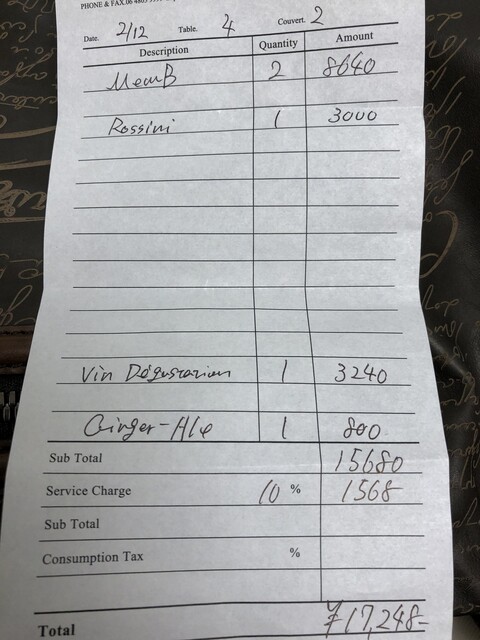 PHONE & FAX.06
Date. 2/12 Table. 4 Couvert. 2
Description Quantity Amount
Menu B 2 8640
Rossini 1 3000
Vin Dégustation 1 3240
Ginger-Ale 1 800
Sub Total 15680
Service Charge 10 % 1568
Sub Total
Consumption Tax %
Total ¥17,248-